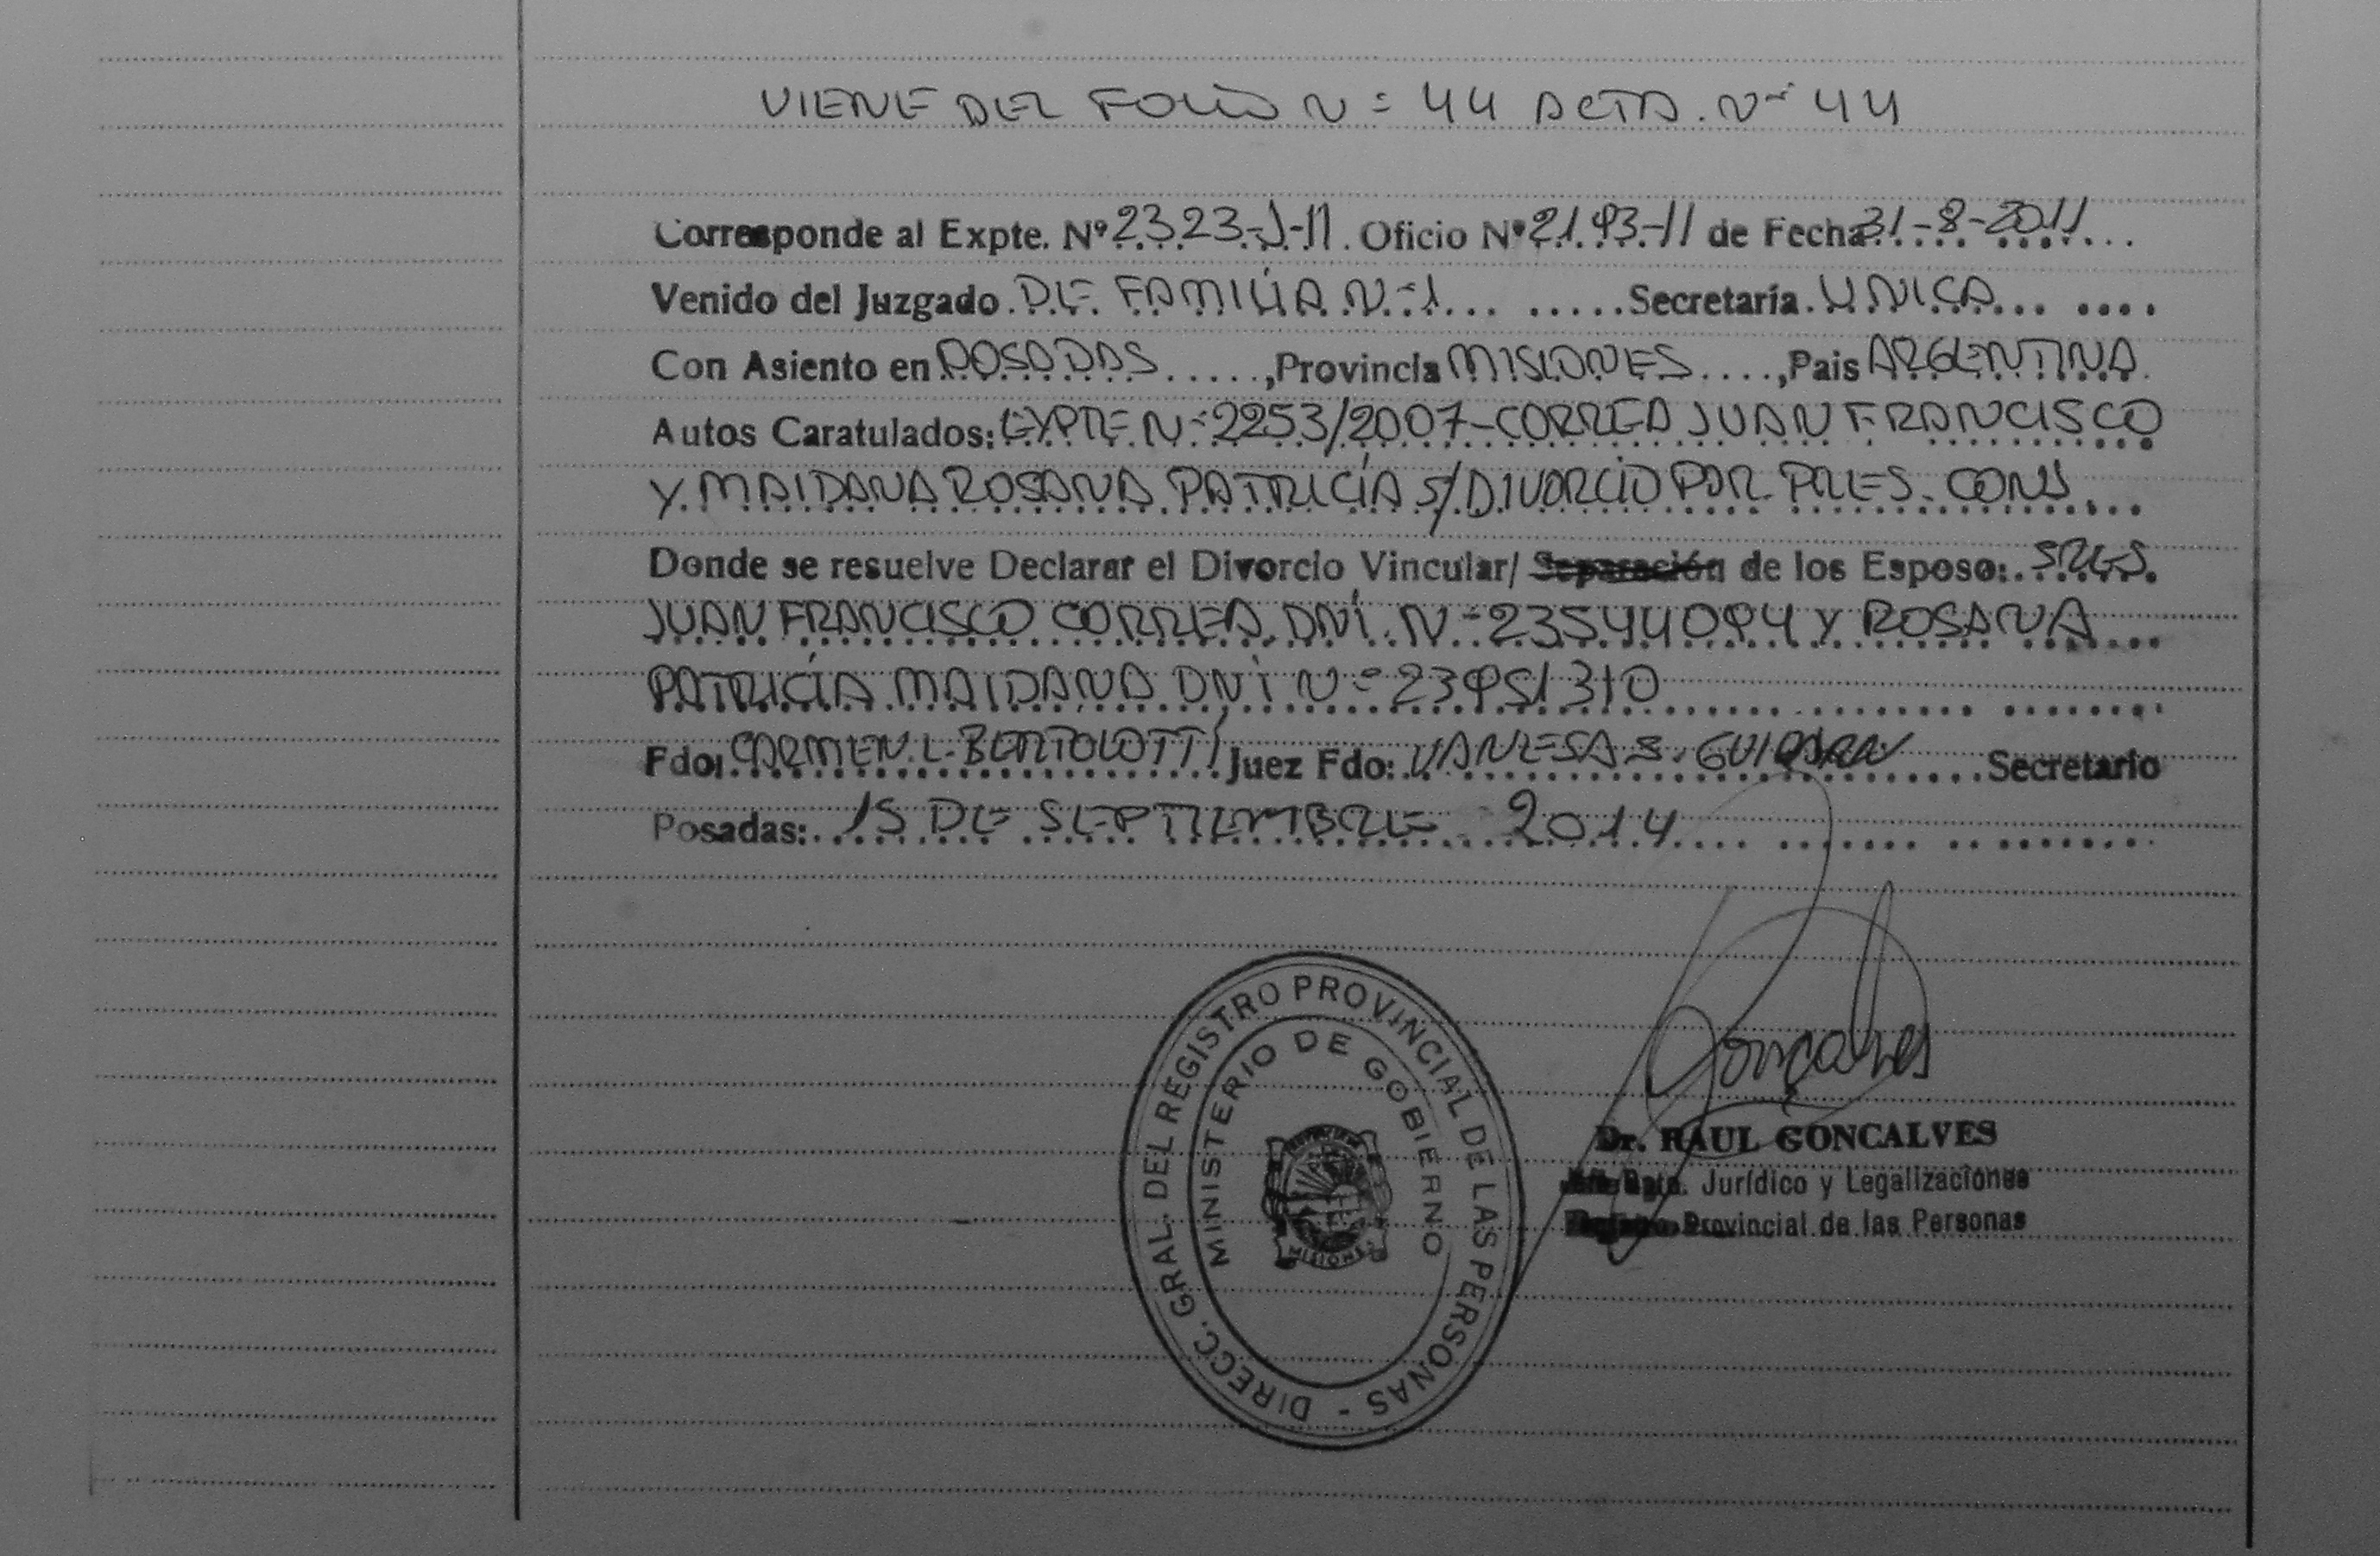 VIENE DEL FOLIO Nº 44 ACTA. Nº 44
Corresponde al Expte. Nº 2323-J-11. Oficio Nº 2193-11 de Fecha 31-8-2011
Venido del Juzgado DE FAMILIA Nº 1 Secretaría UNICA
Con Asiento en POSADAS, Provincia MISIONES, Pais ARGENTINA
Autos Caratulados: EXPTE Nº 2253/2007-CORREA JUAN FRANCISCO
Y MAIDANA ROSANA PATRICIA S/DIVORCIO POR PRES. CONJ.
Donde se resuelve Declarar el Divorcio Vincular/ Separación de los Esposo: SRES.
JUAN FRANCISCO CORREA, DNI. Nº 23544094 Y ROSANA
PATRICIA MAIDANA DNI Nº 23951310
Fdo: CARMEN L. BERTOLOTTI Juez Fdo: VANESA S. Secretario
Posadas: 15 DE SEPTIEMBRE 2014
DIRECC. GRAL. DEL REGISTRO PROVINCIAL DE LAS PERSONAS -
MINISTERIO DE GOBIERNO
MISIONES
Goncalves
Dr. RAUL GONCALVES
Dpto. Jurídico y Legalizaciones
Registro Provincial de las Personas